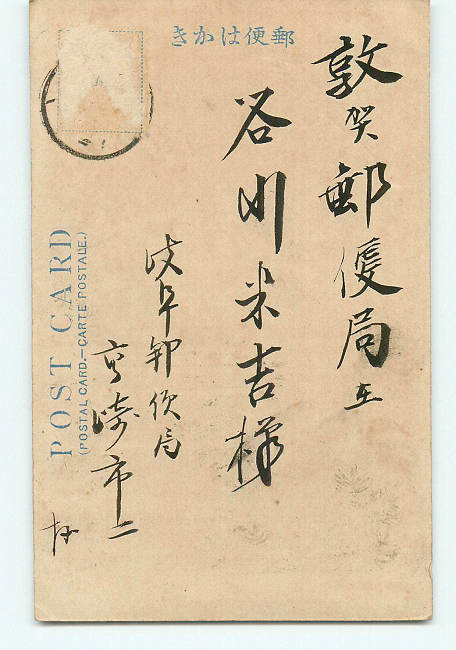 郵便はかき
敦賀郵便局
谷川米吉様
岐阜郵便局
市二
POST CARD
(POSTAL CARD.—CARTE POSTALE.)